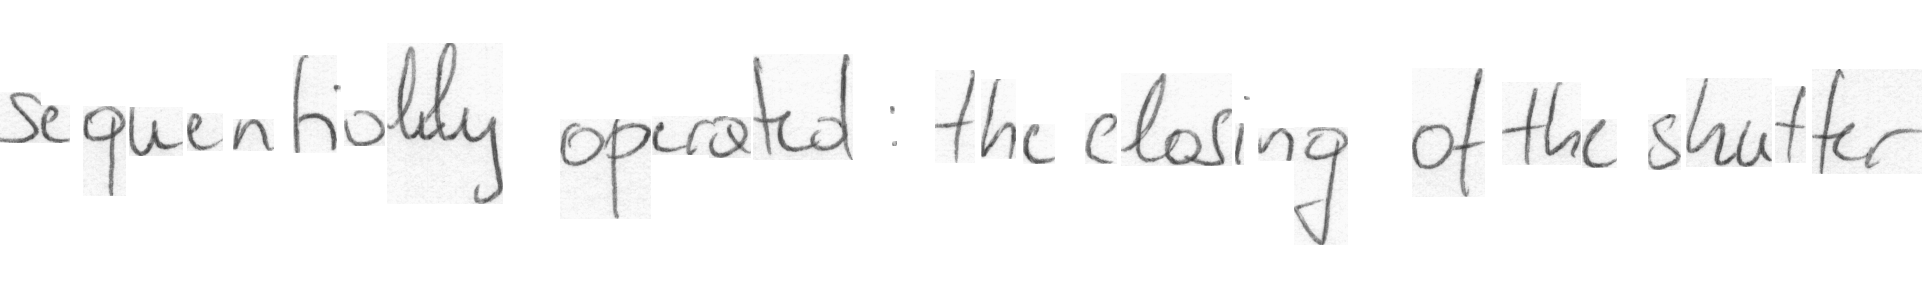 sequentially operated : the closing of the shutter